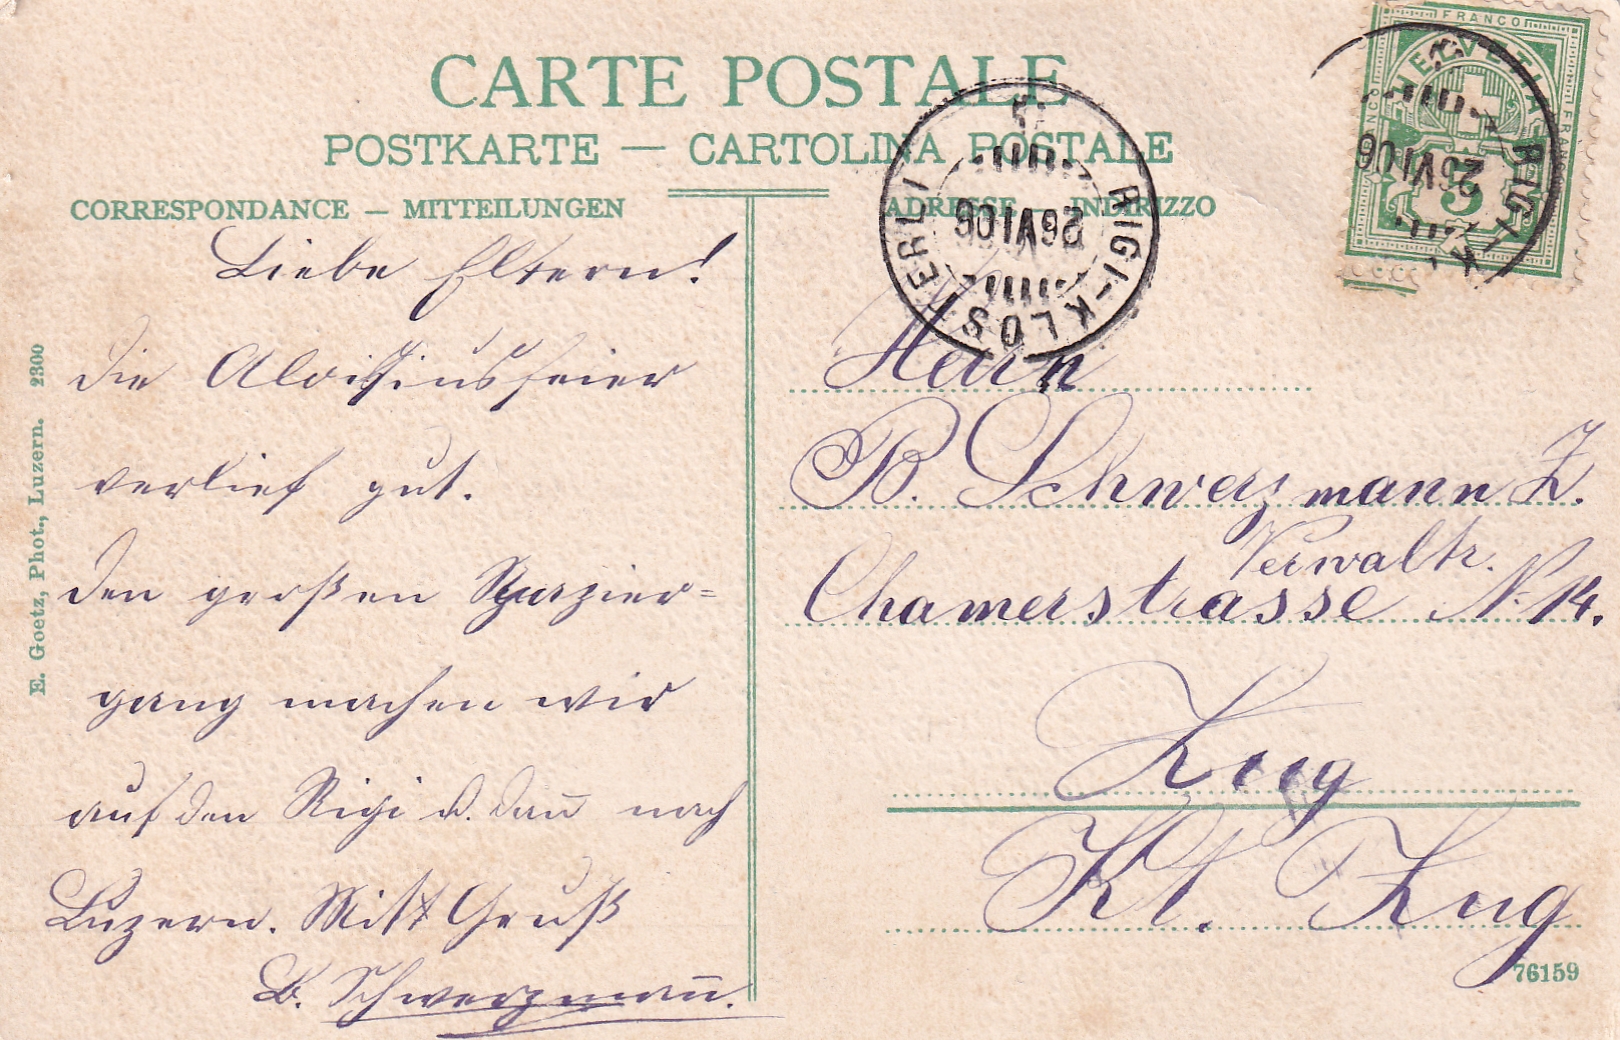 CARTE POSTALE
POSTKARTE — CARTOLINA POSTALE
CORRESPONDANCE — MITTEILUNGEN
ADRESSE — INDIRIZZO
Liebe Eltern!
die Aloisiusfeier
verlief gut.
den großen Spazier=
gang machen wir
auf den Rigi u. dann nach
Luzern. Mit Gruß
B. Schwerzmann.
E. Goetz, Phot., Luzern. 2300
RIGI-KLÖSTERLI
26 VI 06
FRANCO
HELVETIA
FRANCO
5
RIGI-K
26 VI 06
Herrn
B. Schwerzmann Z.
Verwaltr.
Chamerstrasse N. 14.
Zug
Kt. Zug
76159